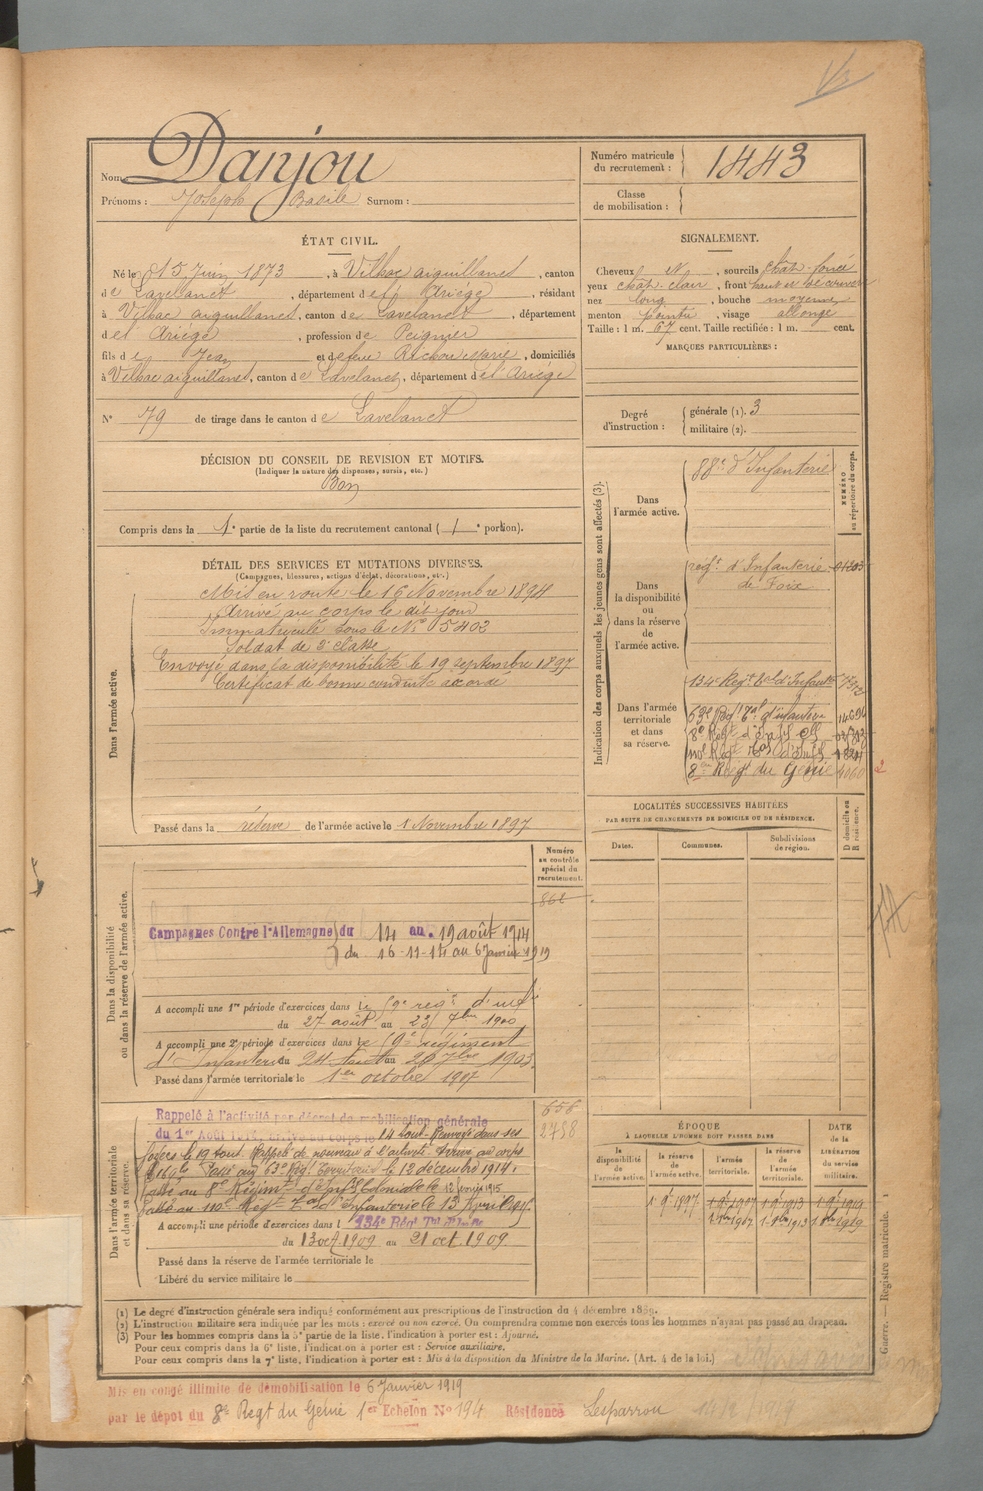 Nom : Danjou
Prénoms : Joseph Basile Surnom :
Numéro matricule du recrutement : 1443
Classe de mobilisation :
ÉTAT CIVIL.
Né le 15 Juin 1873, à Vilhac aiguillanet, canton
de Lavelanet, département de l'Ariége, résidant
à Vilhac aiguillanet, canton de Lavelanet, département
de l'Ariége, profession de Peignier
fils de Jean et de feue Rachou Marie, domiciliés
à Vilhac aiguillanet, canton de Lavelanet, département de l'Ariége
N° 79 de tirage dans le canton de Lavelanet
SIGNALEMENT.
Cheveux N, sourcils chât-foncé
yeux chât-clair, front haut et découvert
nez long, bouche moyenne
menton pointu, visage allongé
Taille : 1 m. 67 cent. Taille rectifiée : 1 m. cent.
MARQUES PARTICULIÈRES :
Degré d'instruction : générale (1). 3
militaire (2).
DÉCISION DU CONSEIL DE REVISION ET MOTIFS.
(Indiquer la nature des dispenses, sursis, etc.)
Bon
Compris dans la 1e partie de la liste du recrutement cantonal (1e portion).
DÉTAIL DES SERVICES ET MUTATIONS DIVERSES.
(Campagnes, blessures, actions d'éclat, décorations, etc.)
Dans l'armée active.
Mis en route le 16 Novembre 1894
Arrivé au corps le dit jour
Immatriculé sous le N° 5402
Soldat de 2e classe
Envoyé dans la disponibilité le 19 septembre 1897
Certificat de bonne conduite accordé
Passé dans la réserve de l'armée active le 1 Novembre 1897
Indication des corps auxquels les jeunes gens sont affectés (3).
NUMÉRO au répertoire du corps.
Dans l'armée active.
88e d'Infanterie
Dans la disponibilité ou dans la réserve de l'armée active.
régt. d'Infanterie 01203
de Foix
Dans l'armée territoriale et dans sa réserve.
134e Régt Tal d'Infanterie
63e Régt Tal d'infanterie
8e Régt d'Inf Cle
110e Régt Tal d'Inf
8e Régt du Génie 4060
2
LOCALITÉS SUCCESSIVES HABITÉES
PAR SUITE DE CHANGEMENTS DE DOMICILE OU DE RÉSIDENCE.
Dates. Communes. Subdivisions de région. D domicile ou R résidence.
Dans la disponibilité ou dans la réserve de l'armée active.
Numéro au contrôle spécial du recrutement.
868
Campagnes Contre l'Allemagne du 14 au 19 août 1914
du 16-11-14 au 6 Janvier 1919
A accompli une 1re période d'exercices dans le 59e régt d'inf
du 27 août au 23 7bre 1900
A accompli une 2e période d'exercices dans le 59e régiment
d'Infanterie du 24 Août au 20 7bre 1903
Passé dans l'armée territoriale le 1er octobre 1907
Dans l'armée territoriale et dans sa réserve.
656
2788
Rappelé à l'activité par décret de mobilisation générale
du 1er Août 1914, arrivé au corps le 14 Aout. Renvoyé dans ses
foyers le 19 Aout. Rappelé de nouveau à l'activité. Arrivé au corps
le 16 9bre. Passé au 63e Régt Territorial le 12 décembre 1914.
Passé au 8e Régiment d'Inf Coloniale le 12 février 1915
Passé au 110e Régt Tal d'Infanterie le 13 Avril 1915.
A accompli une période d'exercices dans l 134e Régt Tal d'Inf
du 13 oct. 1909 au 21 oct. 1909
Passé dans la réserve de l'armée territoriale le
Libéré du service militaire le
ÉPOQUE À LAQUELLE L'HOMME DOIT PASSER DANS
la disponibilité de l'armée active. la réserve de l'armée active. l'armée territoriale. la réserve de l'armée territoriale.
DATE de la LIBÉRATION du service militaire.
1 9bre 1897 1 9bre 1907 1 9bre 1913 1 9bre 1919
1 8bre 1907 1 8bre 1913 1 8bre 1919
(1) Le degré d'instruction générale sera indiqué conformément aux prescriptions de l'instruction du 4 décembre 1889.
(2) L'instruction militaire sera indiquée par les mots : exercé ou non exercé. On comprendra comme non exercés tous les hommes n'ayant pas passé au drapeau.
(3) Pour les hommes compris dans la 5e partie de la liste, l'indication à porter est : Ajourné.
Pour ceux compris dans la 6e liste, l'indication à porter est : Service auxiliaire.
Pour ceux compris dans la 7e liste, l'indication à porter est : Mis à la disposition du Ministre de la Marine. (Art. 4 de la loi.)
Guerre. — Registre matricule. 1
Mis en congé illimité de démobilisation le 6 Janvier 1919
par le dépôt du 8e Regt du Génie 1er Echelon N° 194 Résidence Lesparrou